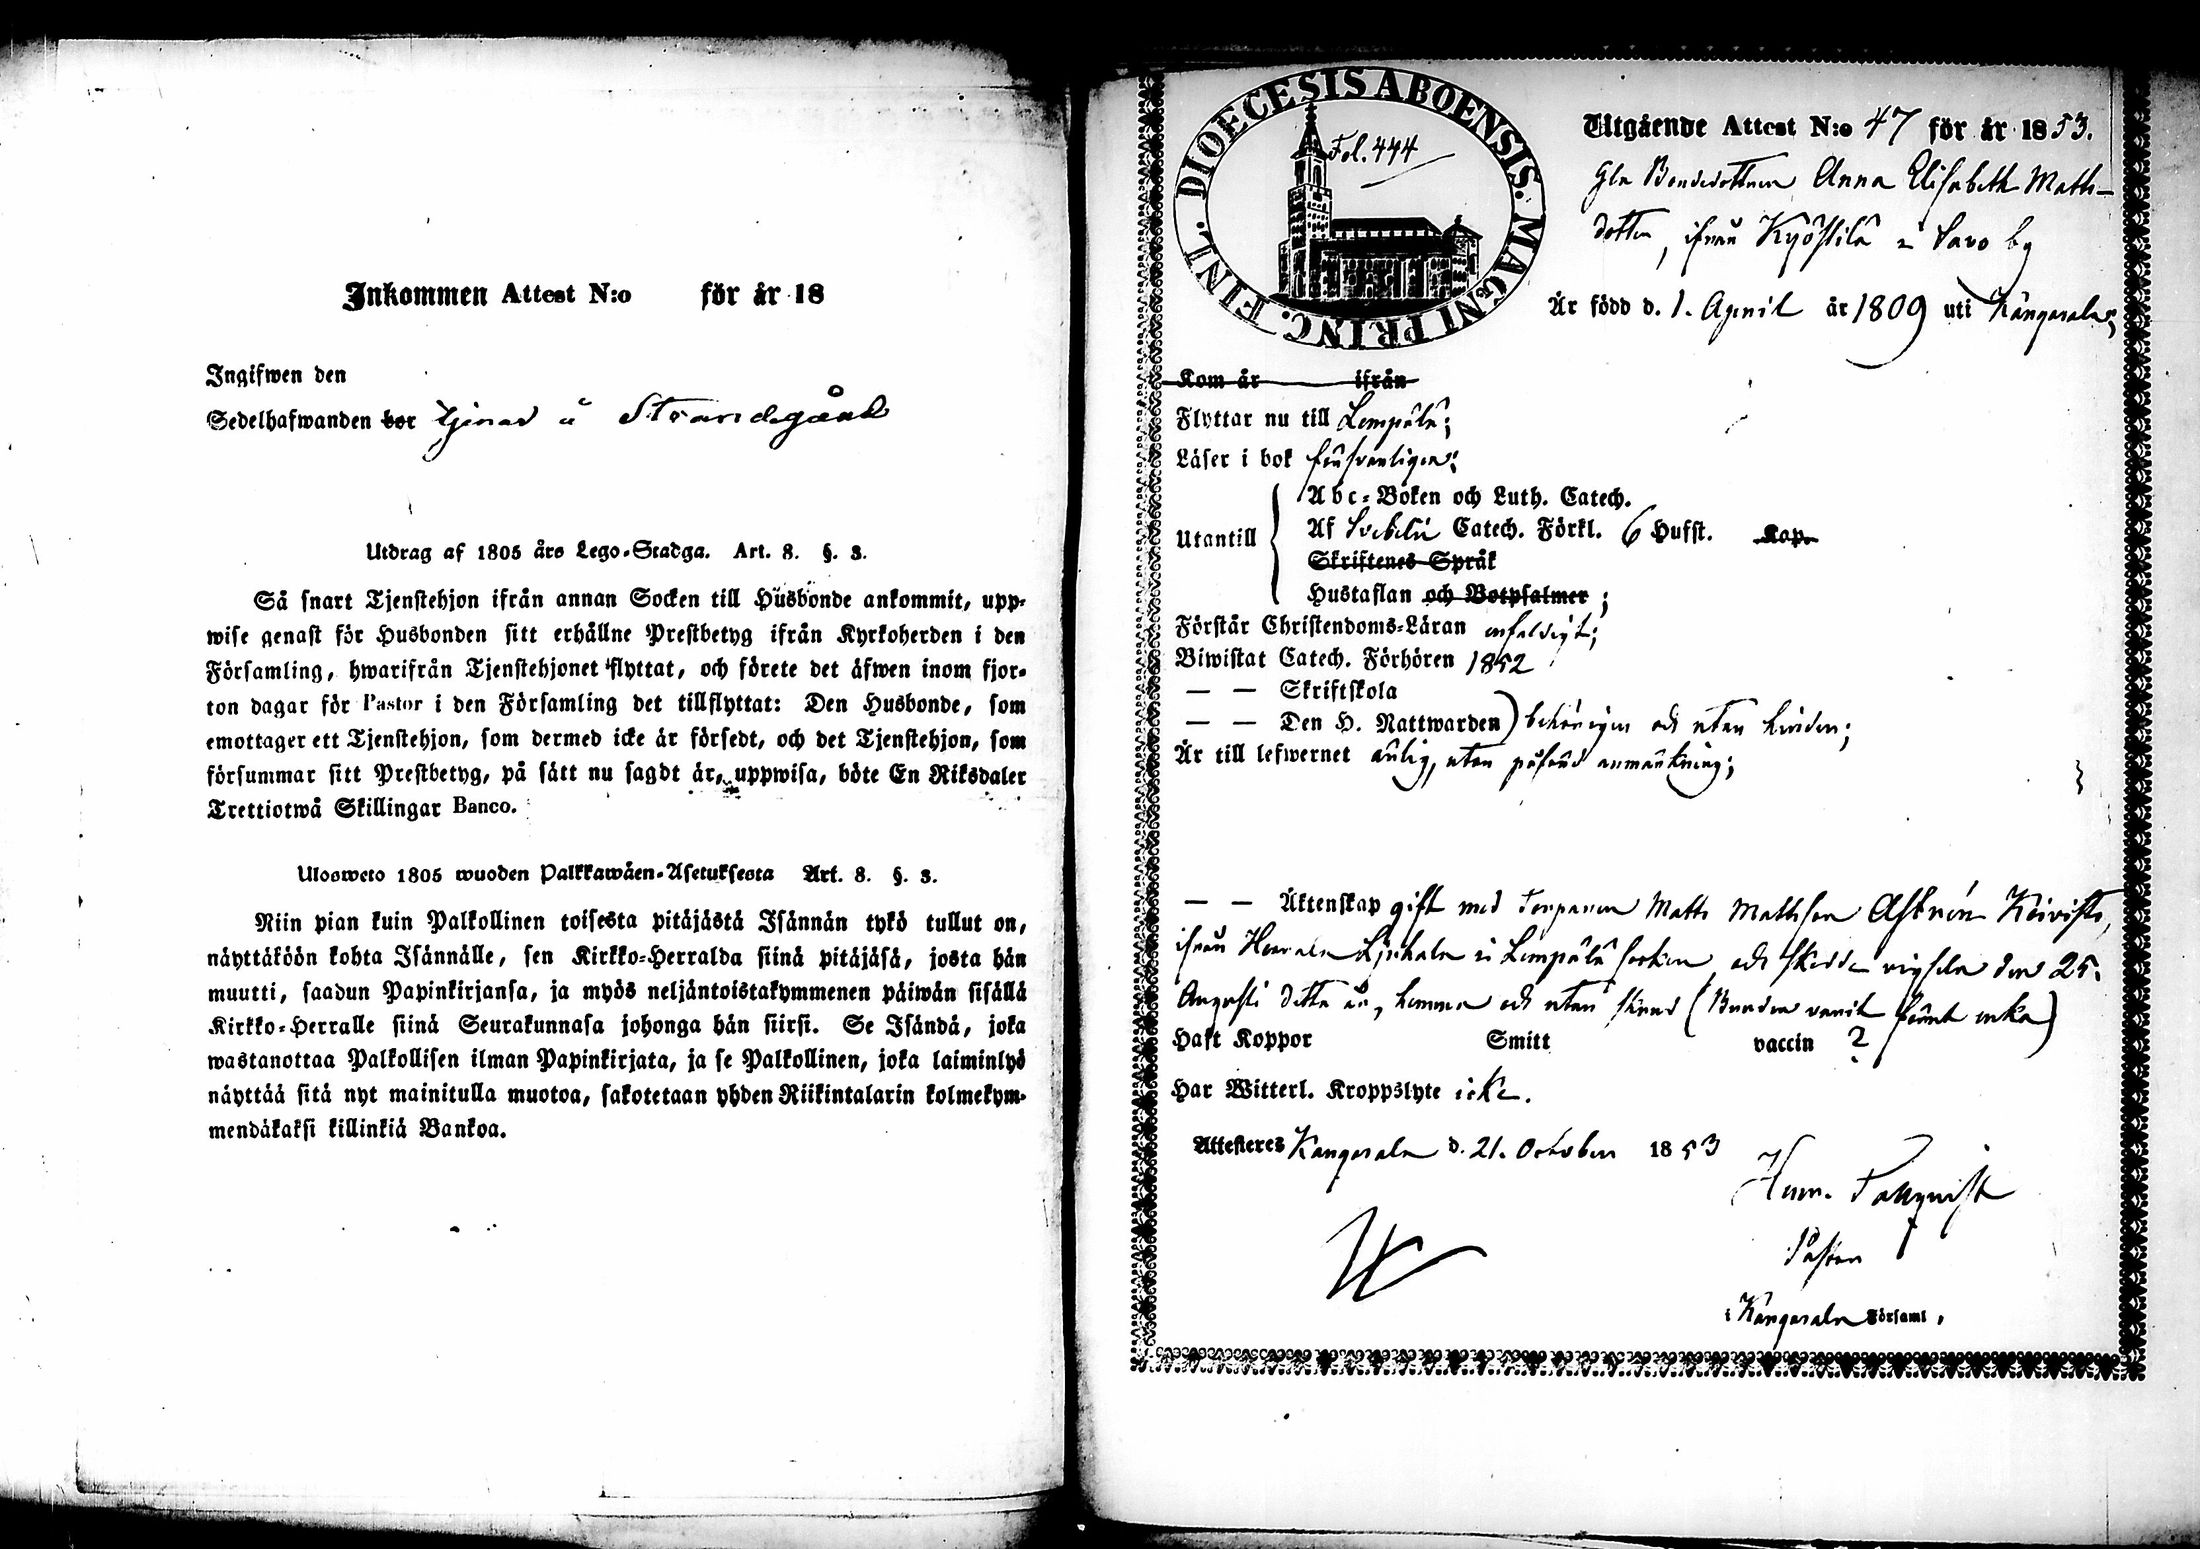 Inkommen Attest N:o för år 18
Ingifwen den
Sedelhafwanden bor tjenar å Strandgård
Utdrag af 1805 års Lego-Stadga. Art. 8. §. 3.
Så snart Tjenstehjon ifrån annan Socken till Husbonde ankommit, upp-
wise genast för Husbonden sitt erhållne Prestbetyg ifrån Kyrkoherden i den
Församling, hwarifrån Tjenstehjonet flyttat, och förete det äfwen inom fjor-
ton dagar för Pastor i den Församling det tillflyttat: Den Husbonde, som
emottager ett Tjenstehjon, som dermed icke är försedt, och det Tjenstehjon, som
försummar sitt Prestbetyg, på sätt nu sagdt är, uppwisa, böte En Riksdaler
Trettiotwå Skillingar Banco.
Ulosweto 1805 wuoden Palkkawäen-Asetuksesta Art. 8. §. 3.
Niin pian kuin Palkollinen toisesta pitäjästä Isännän tykö tullut on,
näyttäköön kohta Isännälle, sen Kirkko-Herralda siinä pitäjäsä, josta hän
muutti, saadun Papinkirjansa, ja myös neljäntoistakymmenen päiwän sisällä
Kirkko-Herralle siinä Seurakunnasa johonga hän siirsi. Se Isändä, joka
wastanottaa Palkollisen ilman Papinkirjata, ja se Palkollinen, joka laiminlyö
näyttää sitä nyt mainitulla muotoa, sakotetaan yhden Riikintalarin kolmekym-
mendäkaksi killinkiä Bankoa.
DIOECESIS ABOENSIS. MAGNI PRINC. FINL.
Fol. 444
Utgående Attest N:o 47 för år 1853.
Bondedottren Anna Elisabeth Matts-
dotter, ifrån Kyöstilä i Savo by
Är född d. 1. April år 1809 uti Kangasala;
Kom år ifrån
Flyttar nu till Lempälä;
Läser i bok försvarligen;
Utantill
Abc-Boken och Luth. Catech.
Af Svebelii Catech. Förkl. 6 Hufst. Kap.
Skriftenes Språk
Hustaflan och Botpsalmer ;
Förstår Christendoms-Läran enfaldigt;
Biwistat Catech. Förhören 1852
— — Skriftskola
— — Den H. Nattwarden behörigen och utan hinder;
Är till lefwernet ärlig, utan påförd anmärkning;
— — Äktenskap gift med Torparen Matts Mattsson Astrén Koivisto,
ifrån Herrala i Lempälä socken och skedde vigseln den 25.
Augusti detta år, hemma och utan (Bruden varit förut enka)
Haft Koppor Smitt vaccin ?
Har Witterl. Kroppslyte icke.
Attesteres Kangasala d. 21. October 1853
Pastor
i Kangasala Församl.